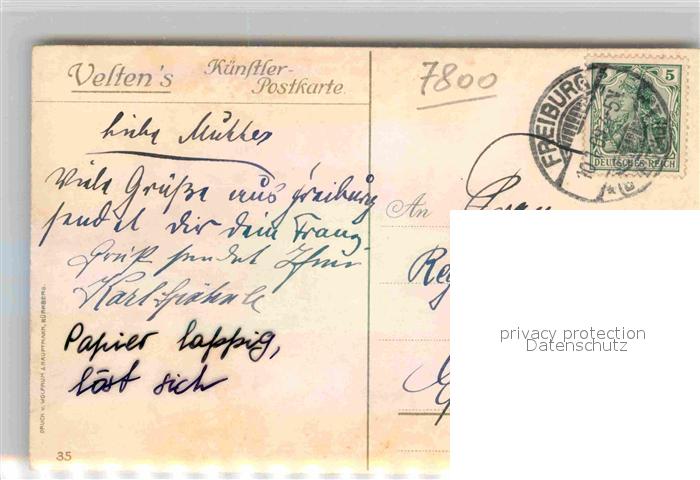 Velten's Künstler-
Postkarte
7800
FREIBURG
5
DEUTSCHES REICH
Liebe Mutter
Viele Grüße aus Freiburg
sendet Dir dein Franz
Gruß sendet Ihnen
Karl
Papier lappig,
löst sich
An Frau
DRUCK v. WOLFRUM & HAUPTMANN, NÜRNBERG.
35
privacy protection
Datenschutz